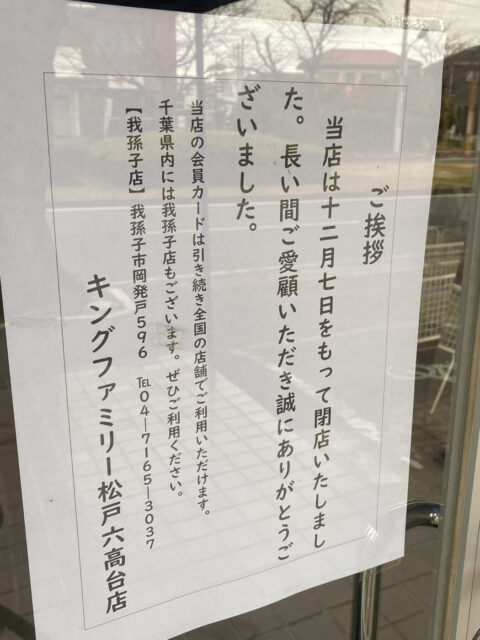 ご挨拶
当店は十二月七日をもって閉店いたしまし
た。長い間ご愛顧いただき誠にありがとうご
ざいました。
当店の会員カードは引き続き全国の店舗でご利用いただけます。
千葉県内には我孫子店もございます。ぜひご利用ください。
【我孫子店】我孫子市岡発戸596 ℡04ー7165ー3037
キングファミリー松戸六高台店